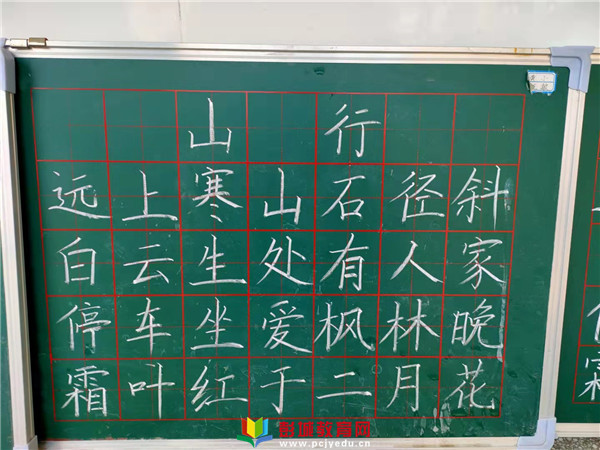 山行
远上寒山石径斜
白云生处有人家
停车坐爱枫林晚
霜叶红于二月花
彭城教育网
www.pcjyedu.cn